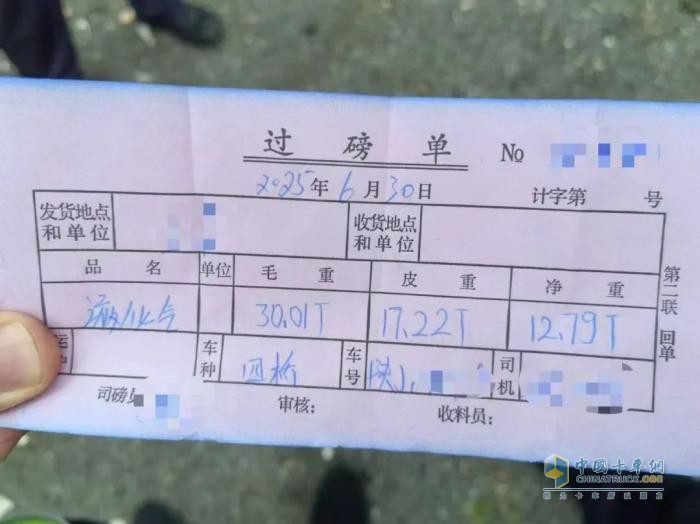 过磅单 No
2025年6月30日 计字第 号
发货地点和单位 收货地点和单位
品名 单位 毛重 皮重 净重
液化气 30.01T 17.22T 12.79T
车种 四桥 车号 陕J 司机
司磅员 审核： 收料员：
第二联 回单
中国卡车网
CHINATRUCK.ORG